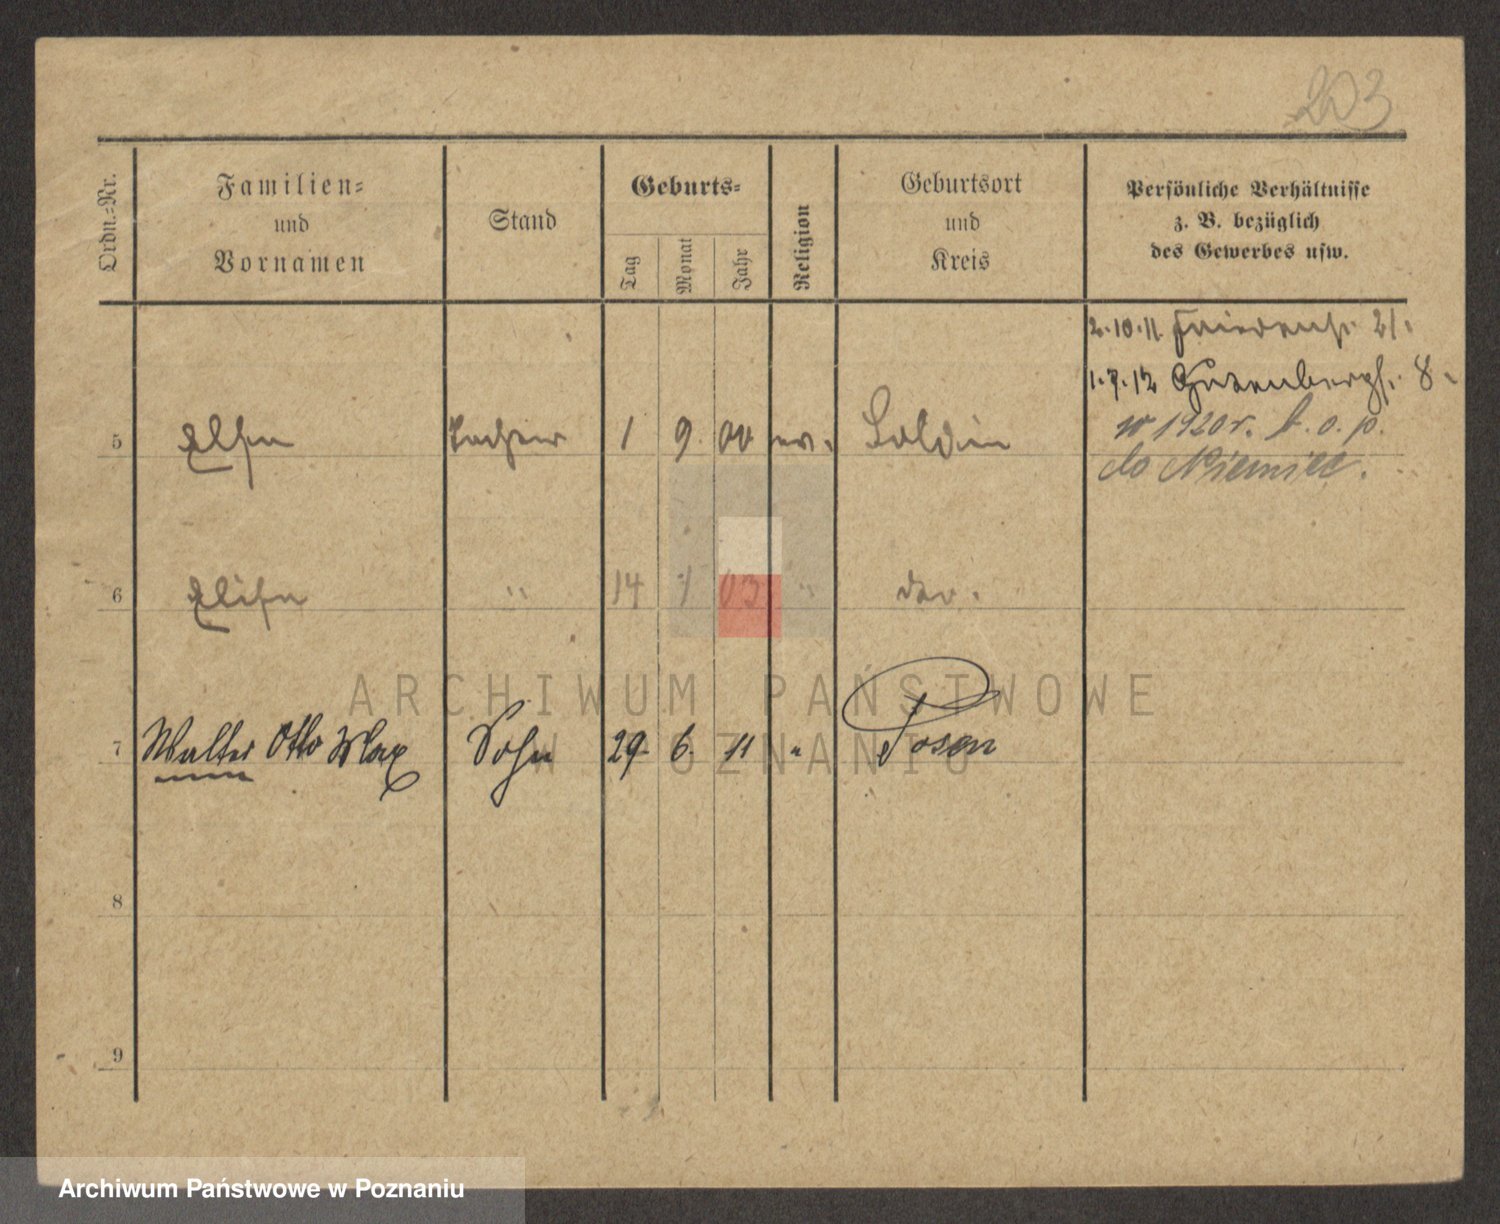 203
Ordn.-Nr.
Familien-
und
Vornamen
Stand
Geburts-
Tag
Monat
Jahr
Religion
Geburtsort
und
Kreis
Persönliche Verhältnisse
z. B. bezüglich
des Gewerbes usw.
2.10.11. Friedenst. 21.
1.7.12 Gutenbergst. 8.
w 1920 r. t. o. p.
do Niemiec.
5 Else Tochter 1 9. 00 ev. Soldin
6 Elise " 14 1 03 "
7 Walter Otto Max Sohn 29. 6. 11 " Posen
8
9
ARCHIWUM PAŃSTWOWE
W POZNANIU
Archiwum Państwowe w Poznaniu